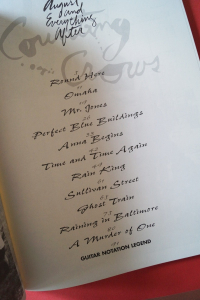 August
and
Everything
After
Counting
Crows
Round Here
Omaha
Mr. Jones
Perfect Blue Buildings
Anna Begins
Time and Time Again
Rain King
Sullivan Street
Ghost Train
Raining in Baltimore
A Murder of One
GUITAR NOTATION LEGEND